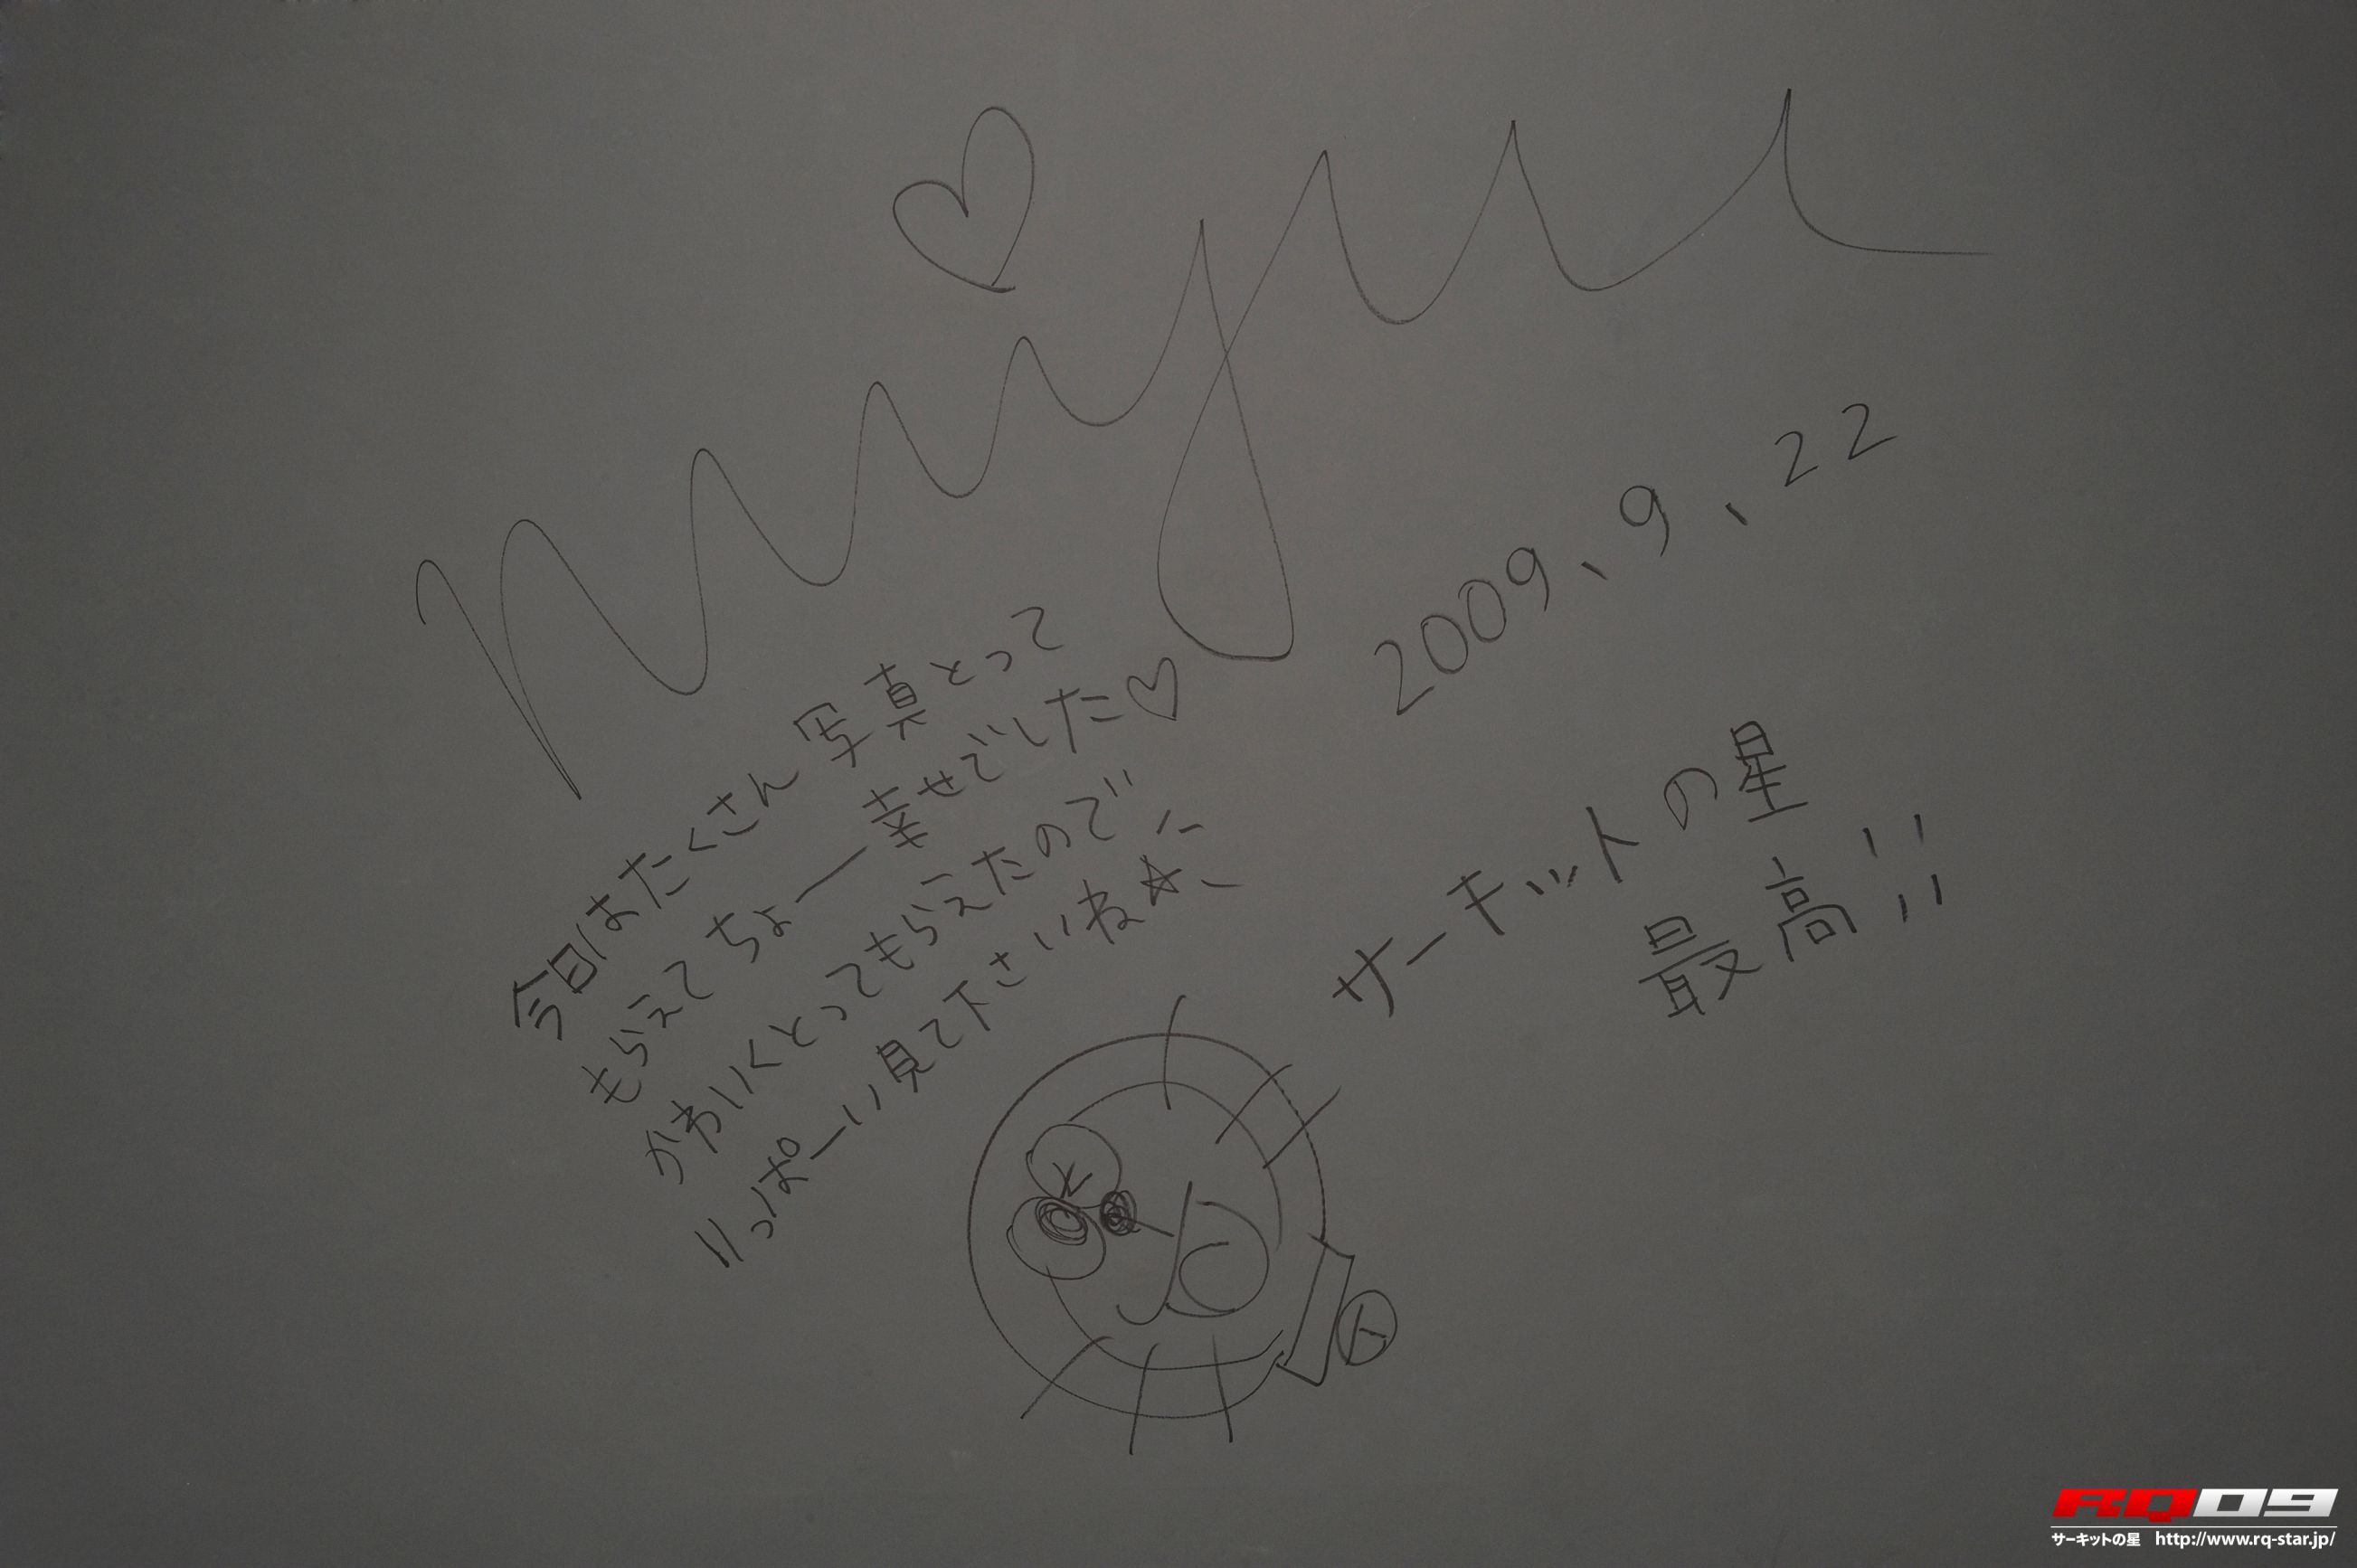 miyuu
2009、9、22
今日はたくさん写真とって
もらえてちょー幸せでした♡
かわいくとってもらえたので
いっぱーい見て下さいね☆
サーキットの星
最高!!
RQ09
サーキットの星 http://www.rq-star.jp/